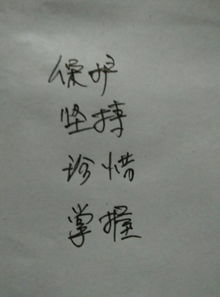 保护
坚持
珍惜
掌握